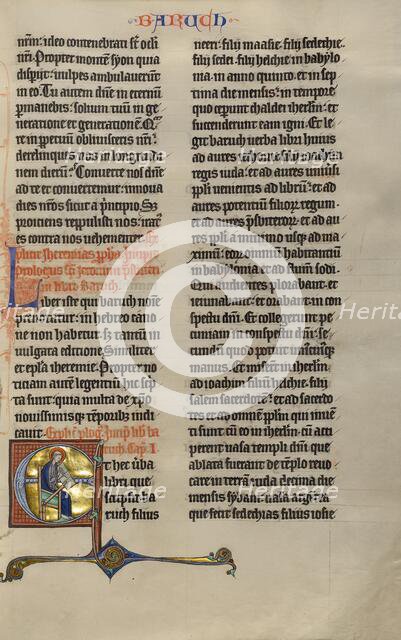 BARUCH
nr̄m: ideo contenebrati st̄ ocli
nr̄i. Propter montem syon quia
disp̄iit: uulpes ambulauerunt
in eo. Tu autem dn̄e in eternū
permanebis: solium tuū in ge
neratione et generationem. Qua
re in perpetuū obliuisceris nr̄i:
derelinques nos in longitudi
nem dierū: Conuerte nos dn̄e
ad te et conuertemur: innoua
dies nr̄os sicut a principio. Sz
proiciens reppulisti nos: irat9
es contra nos uehementer. Ex
plicit iheremias
prologus
in libr̄ Baruch.
Liber iste qui baruch noīe
prenotatur: in hebreo cano
ne non habetur. sz tantum in
uulgata editione. Similiter
et epl̄a iheremie. Propter no
titiam autem legentiū: hic scp̄
ta sunt: quia multa de xp̄o
nouissimisqz temporibz indi
cant.
Et hec uba
libri que
scripsit ba
ruch filius
neeri. filij maasie. filij sedechie.
filij sedei. filij helchie in babylo
nia. in anno quinto. et in sep
tima die mensis: in tempore
quo ceperunt chaldei iherlm̄: et
succenderunt eam igni. Et le
git baruch uerba libri huius
ad aures iechonie filij ioachim
regis iuda: et ad aures uniuersi
ppl̄i uenientis ad librū: et ad
aures potentium filiorz regum.
et ad aures presbiterorz: et ad aures
ppl̄i a minimo usqz ad ma
ximū: eorum omniū habitantiū
in babylonia ad flumen sodi.
Qui audientes plorabant: et
ieiunabant: et orabant in con
spectu dn̄i. Et collegerunt pe
cuniam secundū quod potuit uniuscuiusqz
manus: et miserunt in iherlm̄
ad ioachim filij helchie filij
salem sacerdotē: et ad sacerdo
tes et ad omnem ppl̄m qui inuen
ti sunt cū eo in iherlm̄. cū acci
peret uasa templi dn̄i: que
ablata fuerant de templo reuo
care in terrā iuda decima die
mensis syban: uasa argentea
que fecit sedechias filius iosie